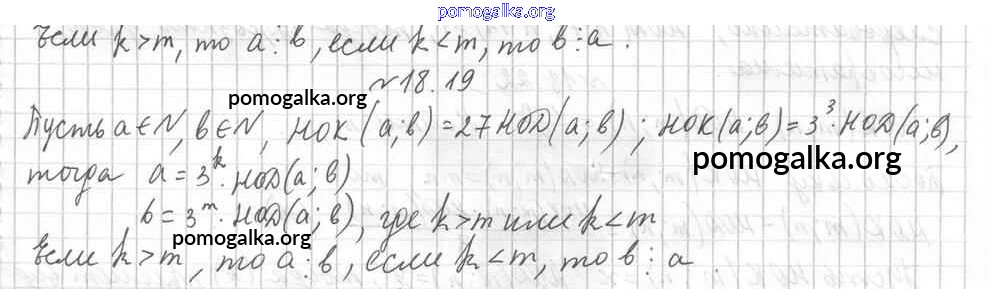 pomogalka.org
Если k > m, то a ⋮ в, если k < m, то в ⋮ a.
№18.19
pomogalka.org
Пусть a ∈ N, в ∈ N, НОК (a; в) = 27 НОД (a; в); НОК (a; в) = 3³ · НОД (a; в),
pomogalka.org
тогда a = 3ᵏ · НОД (a; в)
в = 3ᵐ · НОД (a; в), где k > m или k < m
pomogalka.org
Если k > m, то a ⋮ в, если k < m, то в ⋮ a.